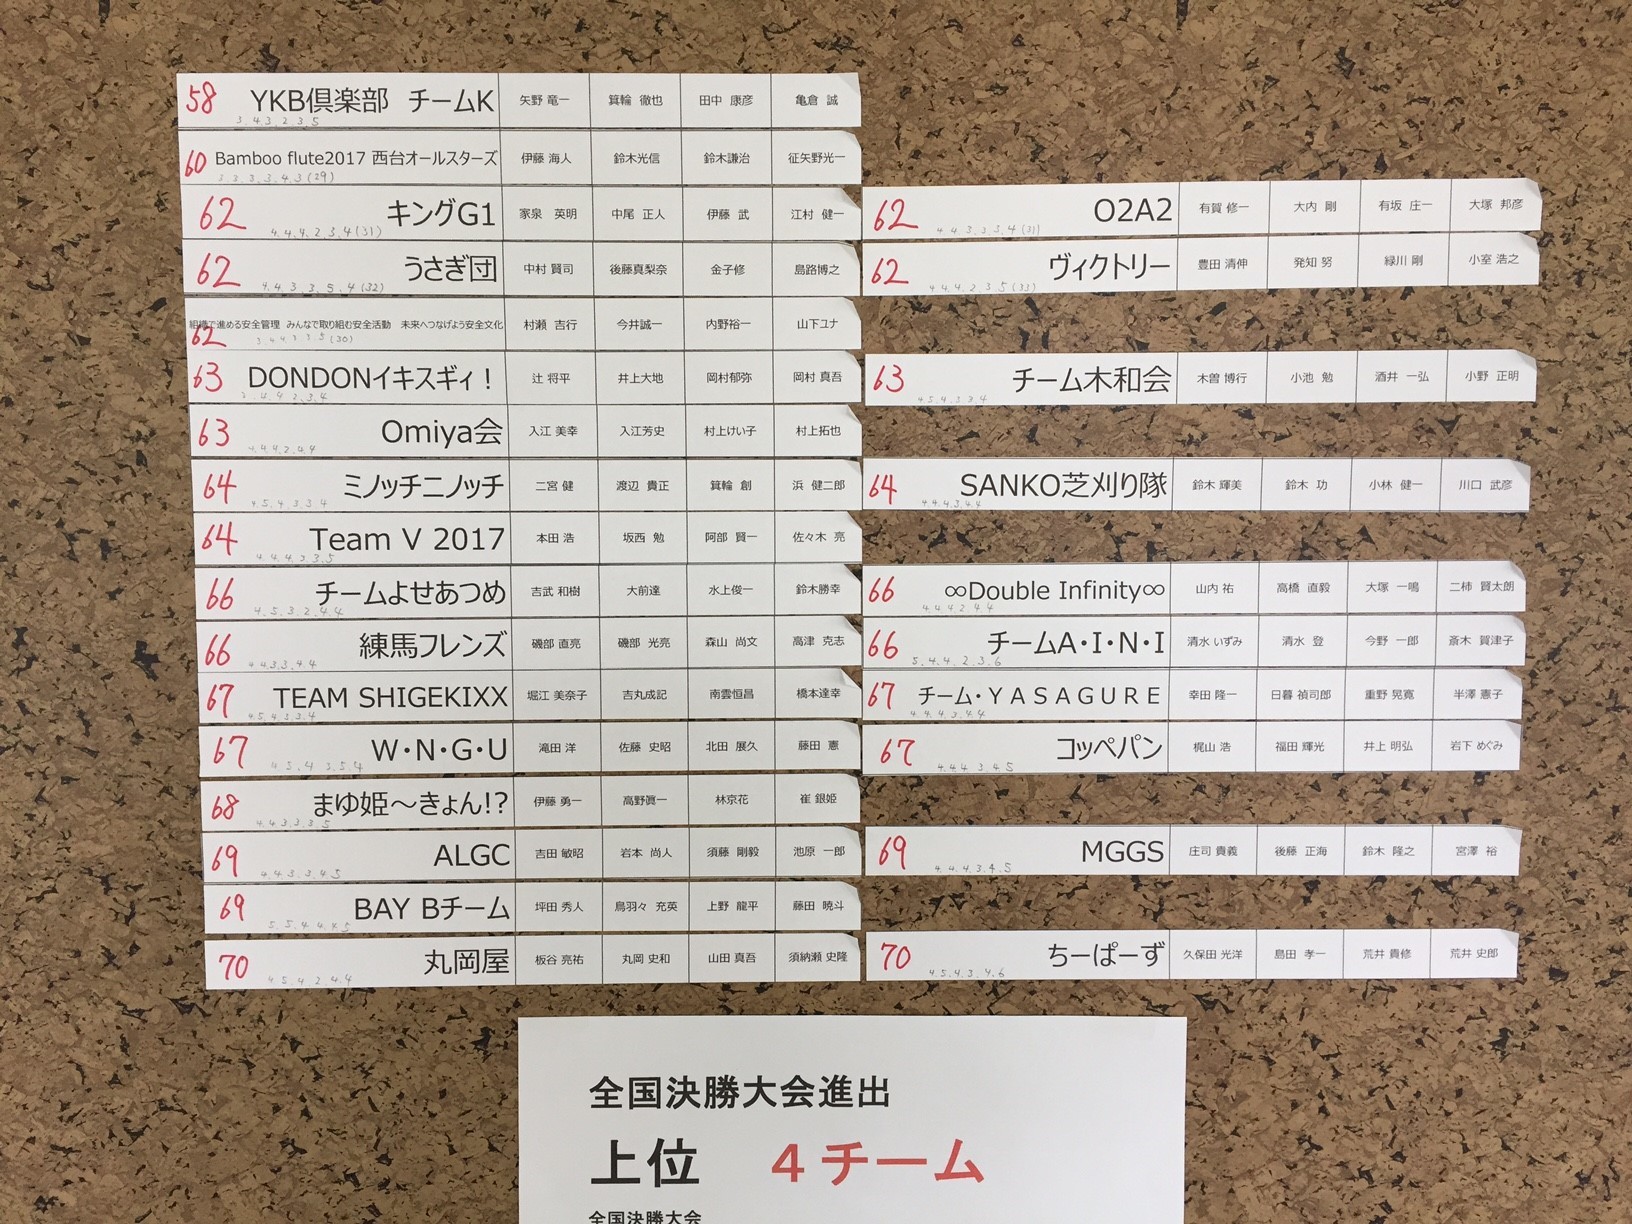 58 YKB倶楽部 チームK 矢野 竜一 箕輪 徹也 田中 康彦 亀倉 誠
3.4.3.2.3.5
60 Bamboo flute2017 西台オールスターズ 伊藤 海人 鈴木光信 鈴木謙治 征矢野光一
3.3.3.3.4.3(29)
62 キングG1 家泉 英明 中尾 正人 伊藤 武 江村 健一
4.4.4.2.3.4(31)
62 O2A2 有賀 修一 大内 剛 有坂 庄一 大塚 邦彦
4.4.3.3.3.4(31)
62 うさぎ団 中村 賢司 後藤真梨奈 金子修 島路博之
4.4.3.3.5.4(32)
62 ヴィクトリー 豊田 清伸 発知 努 緑川 剛 小室 浩之
4.4.4.2.3.5(33)
62 組織で進める安全管理 みんなで取り組む安全活動 未来へつなげよう安全文化 村瀬 吉行 今井誠一 内野裕一 山下ユナ
63 DONDONイキスギィ！ 辻 将平 井上大地 岡村郁弥 岡村 真吾
63 チーム木和会 木曽 博行 小池 勉 酒井 一弘 小野 正明
4.5.4.3.3.4
63 Omiya会 入江 美幸 入江芳史 村上けい子 村上拓也
4.4.4.2.4.4
64 ミノッチニノッチ 二宮 健 渡辺 貴正 箕輪 創 浜 健二郎
4.5.4.3.3.4
64 SANKO芝刈り隊 鈴木 輝美 鈴木 功 小林 健一 川口 武彦
4.4.4.3.4.4
64 Team V 2017 本田 浩 坂西 勉 阿部 賢一 佐々木 亮
4.4.4.3.3.5
66 チームよせあつめ 吉武 和樹 大前達 水上俊一 鈴木勝幸
4.5.3.2.4.4
66 ∞Double Infinity∞ 山内 祐 高橋 直毅 大塚 一鳴 二柿 賢太朗
4.4.4.2.4.4
66 練馬フレンズ 磯部 直亮 磯部 光亮 森山 尚文 高津 克志
4.4.3.3.4.4
66 チームA・I・N・I 清水 いずみ 清水 登 今野 一郎 斎木 賀津子
5.4.4.2.3.6
67 TEAM SHIGEKIXX 堀江 美奈子 吉丸成記 南雲恒昌 橋本達幸
4.5.4.3.3.4
67 チーム・ＹＡＳＡＧＵＲＥ 幸田 隆一 日暮 禎司郎 重野 晃寛 半澤 憲子
4.4.4.3.4.4
67 W・N・G・U 滝田 洋 佐藤 史昭 北田 展久 藤田 憲
4.5.4.3.5.4
67 コッペパン 梶山 浩 福田 輝光 井上 明弘 岩下 めぐみ
4.4.4.3.4.5
68 まゆ姫～きょん!? 伊藤 勇一 高野眞一 林京花 崔 銀姫
4.4.3.3.3.5
69 ALGC 吉田 敏昭 岩本 尚人 須藤 剛毅 池原 一郎
4.4.3.3.4.5
69 MGGS 庄司 貴義 後藤 正海 鈴木 隆之 宮澤 裕
4.4.4.3.4.5
69 BAY Bチーム 坪田 秀人 鳥羽々 充英 上野 龍平 藤田 暁斗
5.5.4.4.4.5
70 丸岡屋 板谷 亮祐 丸岡 史和 山田 真吾 須納瀬 史隆
4.5.4.2.4.4
70 ちーぱーず 久保田 光洋 島田 孝一 荒井 貴修 荒井 史郎
4.5.4.3.4.6
全国決勝大会進出
上位 4チーム
全国決勝大会